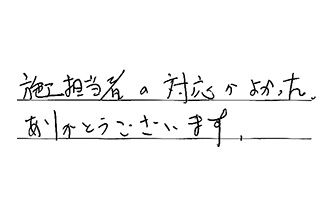 施工担当者の対応がよかった。
ありがとうございます。